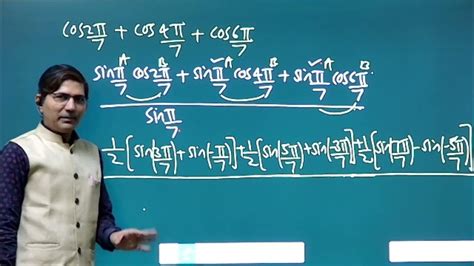 cos2π/7 + cos4π/7 + cos6π/7
A B A B A B
sinπ/7 cos2π/7 + sinπ/7 cos4π/7 + sinπ/7 cos6π/7
sinπ/7
1/2[sin(3π/7)+sin(-π/7)]+1/2[sin(5π/7)+sin(-3π/7)]+1/2[sin(7π/7)-sin(-5π/7)]